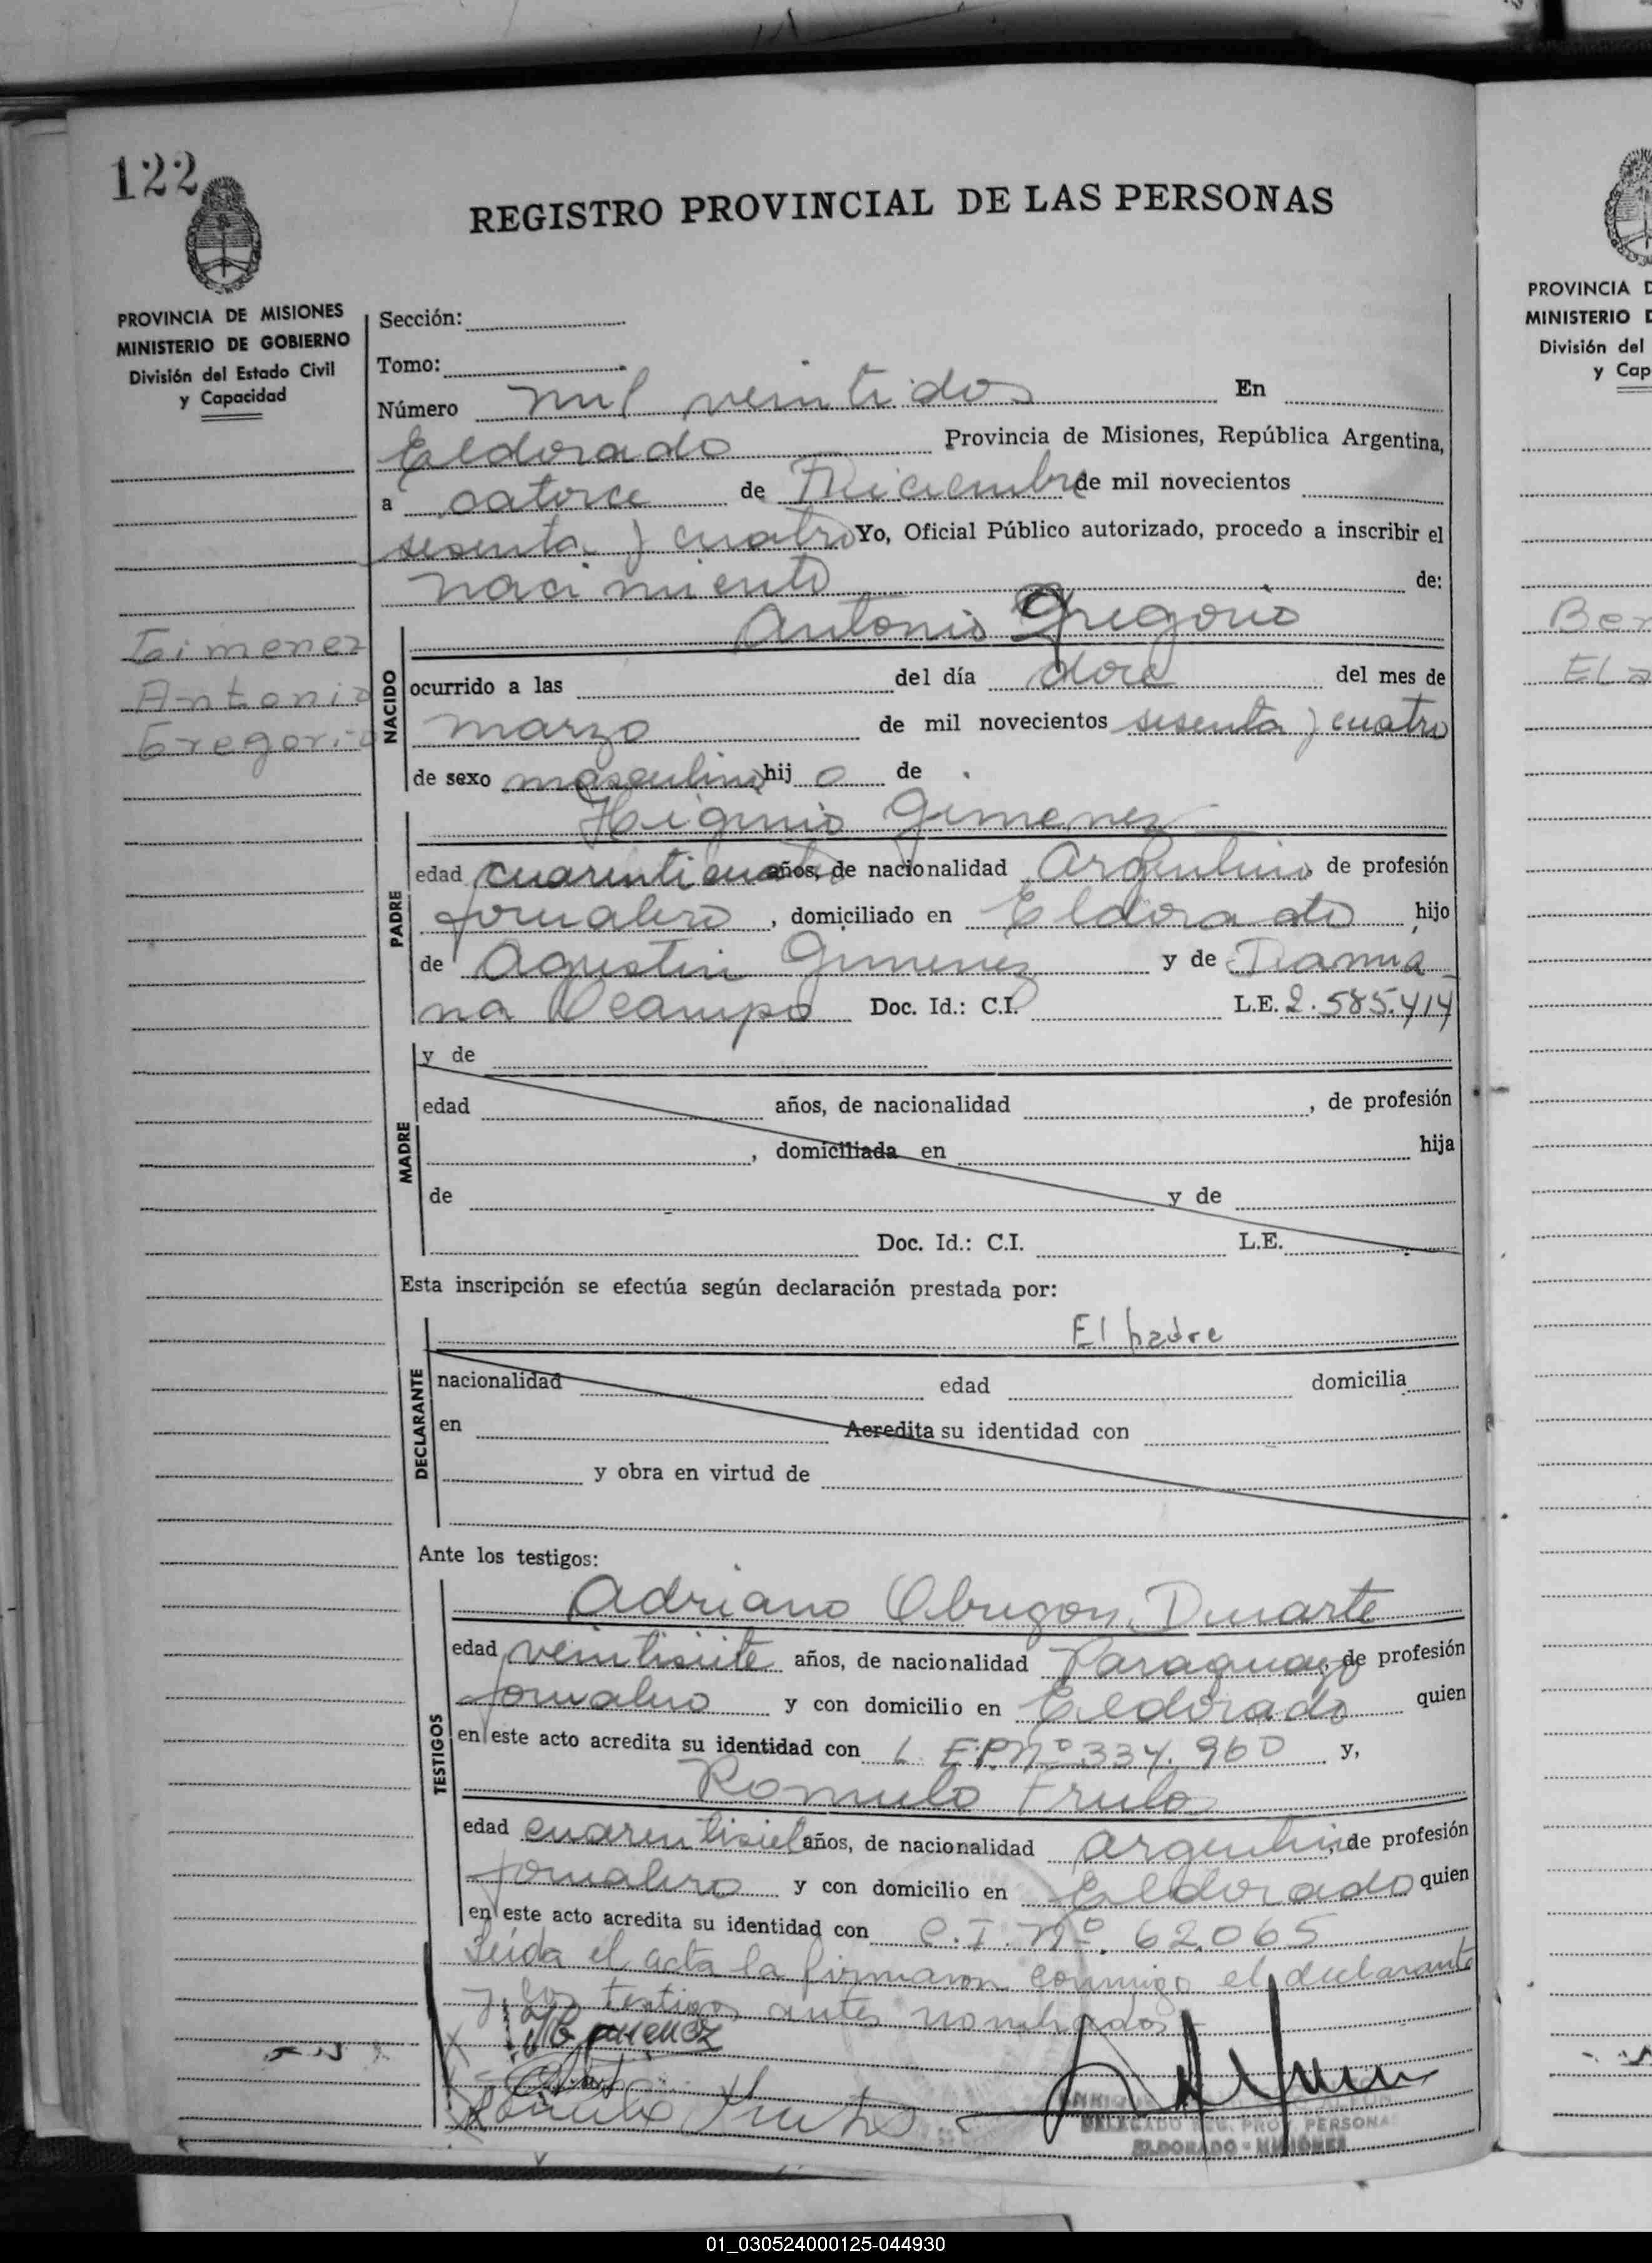 122
REGISTRO PROVINCIAL DE LAS PERSONAS
PROVINCIA DE MISIONES
MINISTERIO DE GOBIERNO
División del Estado Civil
y Capacidad
Gimenez
Antonio
Gregorio
Sección:
Tomo:
Número mil veintidos En
Eldorado Provincia de Misiones, República Argentina,
a catorce de Diciembre de mil novecientos
sesenta y cuatro Yo, Oficial Público autorizado, procedo a inscribir el
nacimiento de:
NACIDO
Antonio Gregorio
ocurrido a las del día doce del mes de
marzo de mil novecientos sesenta y cuatro
de sexo masculino hij o de
PADRE
Higinio Gimenez
edad cuarenticuatro años, de nacionalidad Argentino de profesión
jornalero, domiciliado en Eldorado hijo
de Agustin Gimenez y de Damia-
na Ocampo Doc. Id.: C.I. L.E. 2.585.414
MADRE
y de
edad años, de nacionalidad , de profesión
, domiciliada en hija
de y de
Doc. Id.: C.I. L.E.
Esta inscripción se efectúa según declaración prestada por:
DECLARANTE
El padre
nacionalidad edad domicilia
en Acredita su identidad con
y obra en virtud de
Ante los testigos:
TESTIGOS
Adriano Obregon Duarte
edad veintisiete años, de nacionalidad Paraguayo, de profesión
jornalero y con domicilio en Eldorado quien
en este acto acredita su identidad con L.E.P.Nº 334.960 y,
Romulo
edad cuarentisiete años, de nacionalidad argentino, de profesión
jornalero y con domicilio en Eldorado quien
en este acto acredita su identidad con C.I. Nº. 62.065
Leida el acta la firmaron conmigo el declarante
y los testigos antes nombrados
Gimenez
DELEGADO REG. PROV. PERSONA
ELDORADO - MISIONES
PROVINCIA D
MINISTERIO D
División del
y Cap
Ber
01_030524000125-044930